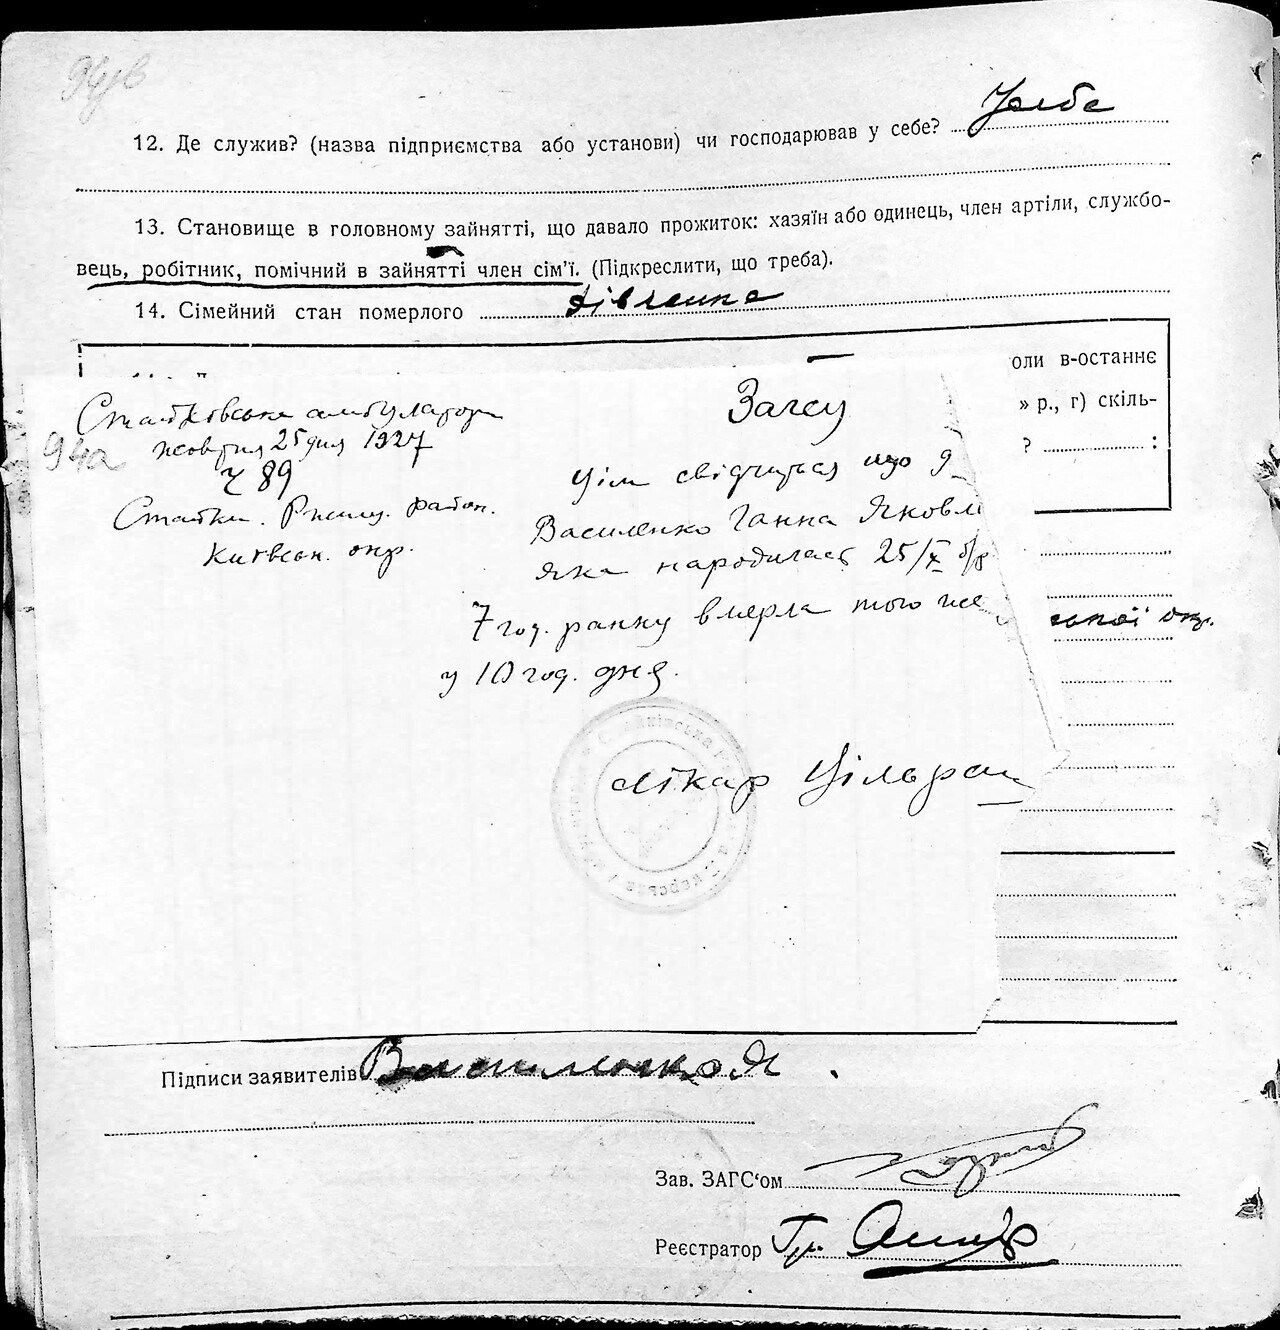 12. Де служив? (назва підприємства або установи) чи господарював у себе? У себе
13. Становище в головному зайнятті, що давало прожиток: хазяїн або одинець, член артіли, службо-
вець, робітник, помічний в зайнятті член сім'ї. (Підкреслити, що треба).
14. Сімейний стан померлого дівчина
оли в-останнє
» р., г) скіль-
? :
Стайківська амбулаторія
жовтня 25 дня 1927
Ч 89
94а
Стайки. Ржищ. район.
Київськ. окр.
Загсу
Цім свідчиться що
Василенко Ганна Яковл
яка народилась 25/X б/р
7 год. ранку вмерла того же
у 10 год. дня.
ської окр.
Лікар
Підписи заявителів Василенко Я
Зав. ЗАГС'ом
Реєстратор Гр.